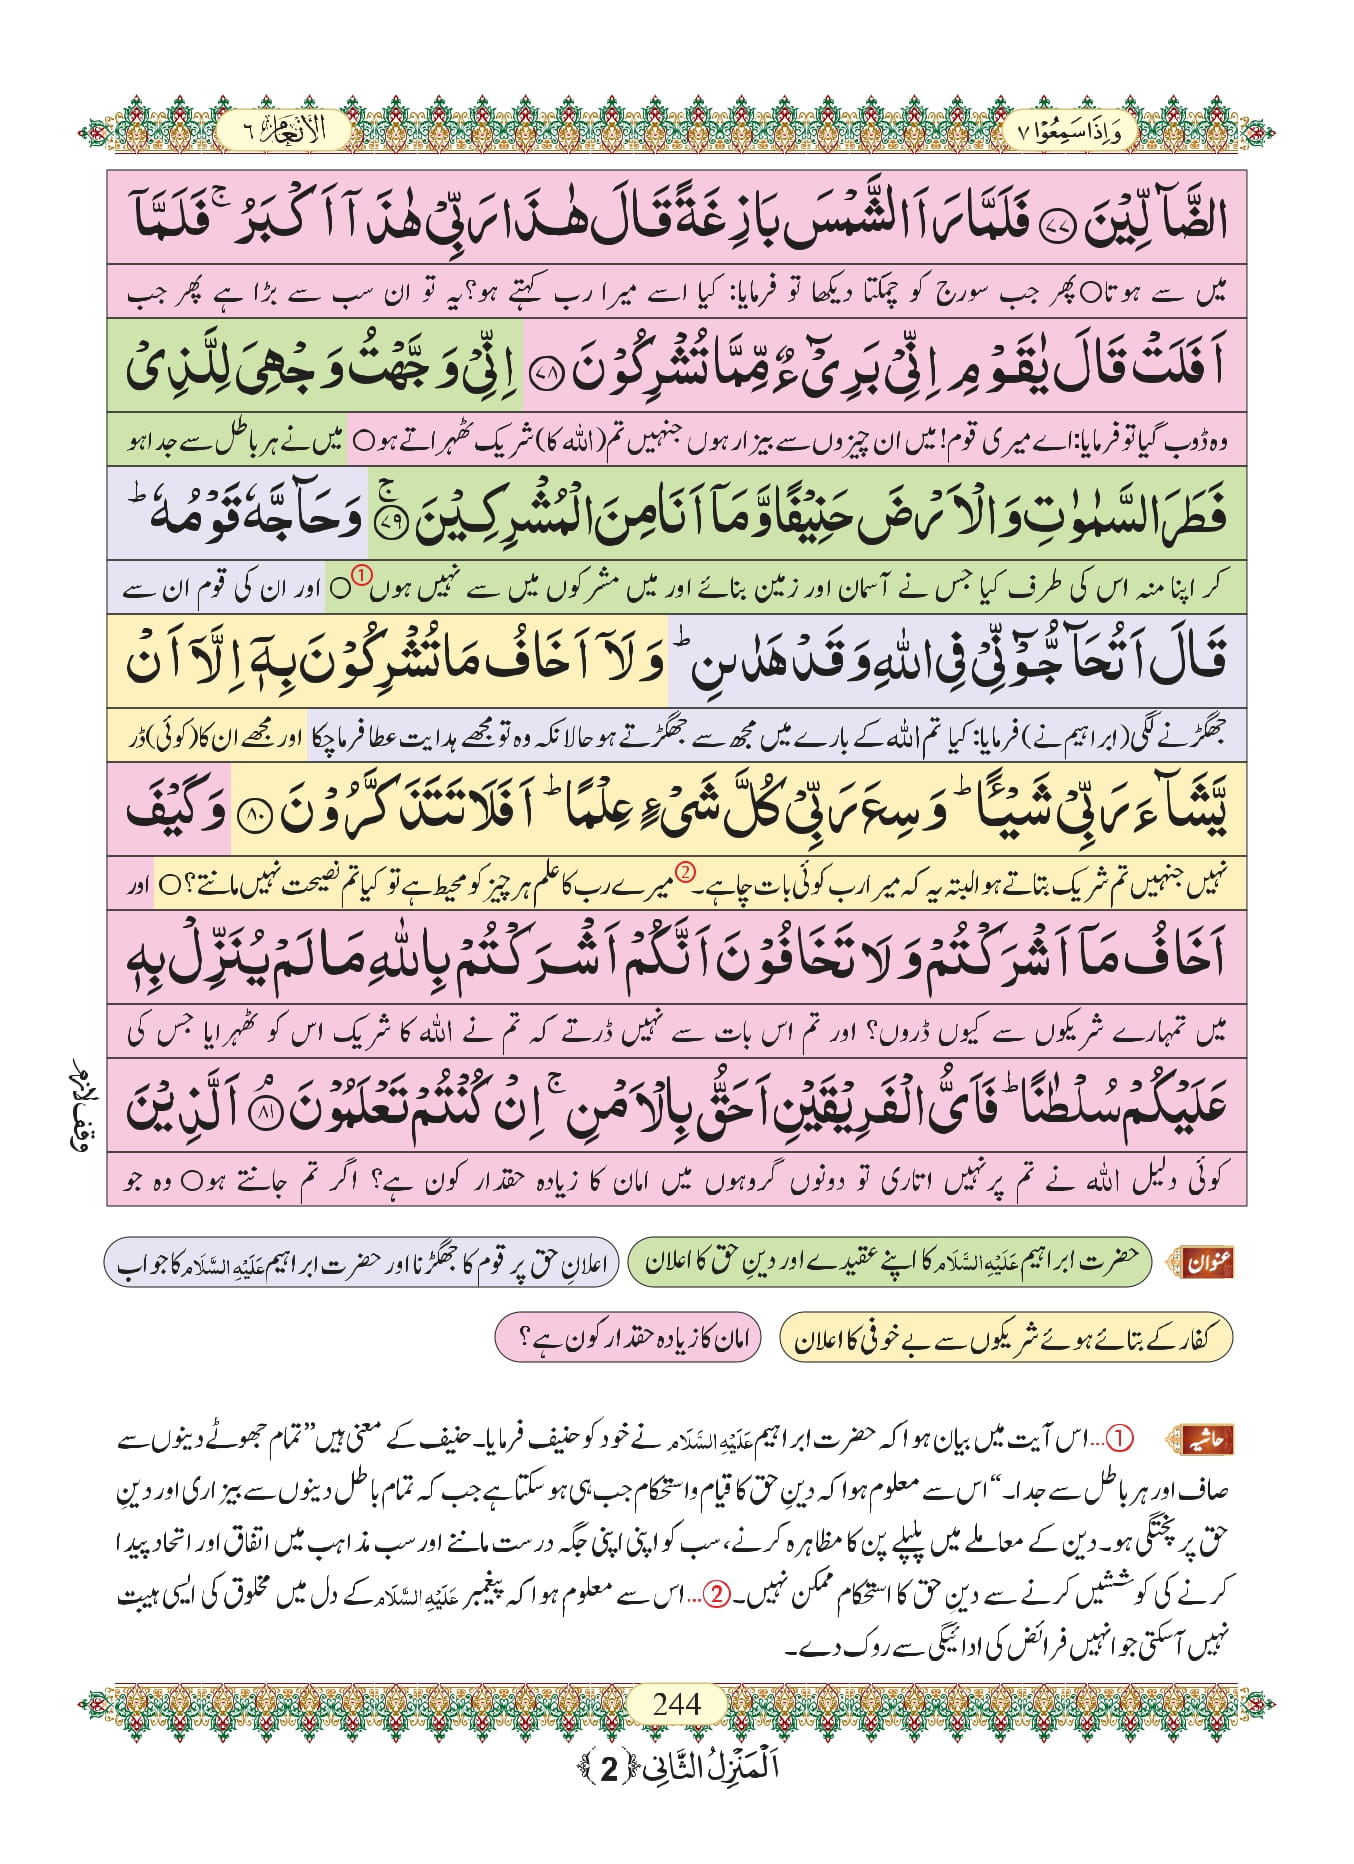 وَاِذَا سَمِعُوْا ۷
الانعام ٦
الضَّآلِّیْنَ ﴿۷۷﴾ فَلَمَّا رَاَ الشَّمْسَ بَازِغَةً قَالَ هٰذَا رَبِّیْ هٰذَاۤ اَكْبَرُ ۚ فَلَمَّاۤ
میں سے ہوتا○ پھر جب سورج کو چمکتا دیکھا تو فرمایا: کیا اسے میرا رب کہتے ہو؟ یہ تو ان سب سے بڑا ہے پھر جب
اَفَلَتْ قَالَ یٰقَوْمِ اِنِّیْ بَرِیْٓءٌ مِّمَّا تُشْرِكُوْنَ ﴿۷۸﴾ اِنِّیْ وَجَّهْتُ وَجْهِیَ لِلَّذِیْ
وہ ڈوب گیا تو فرمایا: اے میری قوم! میں ان چیزوں سے بیزار ہوں جنہیں تم (اللہ کا) شریک ٹھہراتے ہو○ میں نے ہر باطل سے جدا ہو
فَطَرَ السَّمٰوٰتِ وَالْاَرْضَ حَنِیْفًا وَّمَاۤ اَنَا مِنَ الْمُشْرِكِیْنَ ﴿۷۹﴾ ۚ وَحَآجَّهٗ قَوْمُهٗ ؕ
کر اپنا منہ اس کی طرف کیا جس نے آسمان اور زمین بنائے اور میں مشرکوں میں سے نہیں ہوں①○ اور ان کی قوم ان سے
قَالَ اَتُحَآجُّوْٓنِّیْ فِی اللّٰهِ وَقَدْ هَدٰىنِ ؕ وَلَاۤ اَخَافُ مَا تُشْرِكُوْنَ بِهٖۤ اِلَّاۤ اَنْ
جھگڑنے لگی (ابراہیم نے) فرمایا: کیا تم اللہ کے بارے میں مجھ سے جھگڑتے ہو حالانکہ وہ تو مجھے ہدایت عطا فرما چکا اور مجھے ان کا (کوئی) ڈر
یَّشَآءَ رَبِّیْ شَیْـًٔا ؕ وَسِعَ رَبِّیْ كُلَّ شَیْءٍ عِلْمًا ؕ اَفَلَا تَتَذَكَّرُوْنَ ﴿۸۰﴾ وَكَیْفَ
نہیں جنہیں تم شریک بتاتے ہو البتہ یہ کہ میرا رب کوئی بات چاہے۔② میرے رب کا علم ہر چیز کو محیط ہے تو کیا تم نصیحت نہیں مانتے؟○ اور
اَخَافُ مَاۤ اَشْرَكْتُمْ وَلَا تَخَافُوْنَ اَنَّكُمْ اَشْرَكْتُمْ بِاللّٰهِ مَا لَمْ یُنَزِّلْ بِهٖ
میں تمہارے شریکوں سے کیوں ڈروں؟ اور تم اس بات سے نہیں ڈرتے کہ تم نے اللہ کا شریک اس کو ٹھہرایا جس کی
عَلَیْكُمْ سُلْطٰنًا ؕ فَاَیُّ الْفَرِیْقَیْنِ اَحَقُّ بِالْاَمْنِ ۚ اِنْ كُنْتُمْ تَعْلَمُوْنَ ﴿۸۱﴾ ۘ اَلَّذِیْنَ
وقف لازم
کوئی دلیل اللہ نے تم پر نہیں اتاری تو دونوں گروہوں میں امان کا زیادہ حقدار کون ہے؟ اگر تم جانتے ہو○ وہ جو
عنوان حضرت ابراہیم عَلَیْهِ السَّلَام کا اپنے عقیدے اور دینِ حق کا اعلان اعلانِ حق پر قوم کا جھگڑنا اور حضرت ابراہیم عَلَیْهِ السَّلَام کا جواب
کفار کے بتائے ہوئے شریکوں سے بے خوفی کا اعلان امان کا زیادہ حقدار کون ہے؟
حاشیہ ①...اس آیت میں بیان ہوا کہ حضرت ابراہیم عَلَیْهِ السَّلَام نے خود کو حنیف فرمایا۔ حنیف کے معنی ہیں ”تمام جھوٹے دینوں سے
صاف اور ہر باطل سے جدا۔“ اس سے معلوم ہوا کہ دینِ حق کا قیام و استحکام جب ہی ہو سکتا ہے جب کہ تمام باطل دینوں سے بیزاری اور دینِ
حق پر پختگی ہو۔ دین کے معاملے میں پلپلے پن کا مظاہرہ کرنے، سب کو اپنی اپنی جگہ درست ماننے اور سب مذاہب میں اتفاق اور اتحاد پیدا
کرنے کی کوششیں کرنے سے دینِ حق کا استحکام ممکن نہیں۔ ②...اس سے معلوم ہوا کہ پیغمبر عَلَیْهِ السَّلَام کے دل میں مخلوق کی ایسی ہیبت
نہیں آسکتی جو انہیں فرائض کی ادائیگی سے روک دے۔
244
اَلْمَنْزِلُ الثَّانِی ﴿2﴾